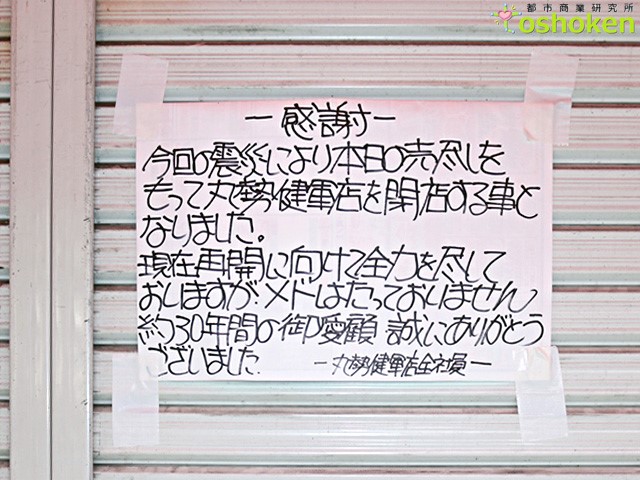 都市商業研究所
toshoken
ー感謝ー
今回の震災により本日の売尽しを
もって丸勢健軍店を閉店する事と
なりました。
現在再開に向けて全力を尽して
おりますが、メドはたっておりません
約30年間の御愛顧 誠にありがとう
ございました
ー丸勢健軍店全社員ー